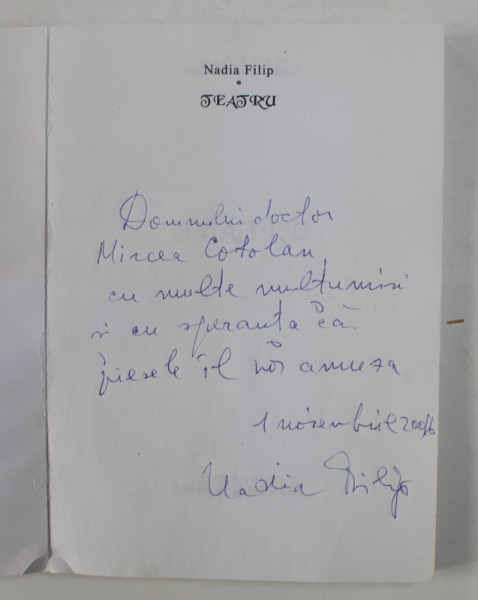 Nadia Filip
*
TEATRU
Domnului doctor
Mircea Cotolan,
cu multe mulțumiri
și cu speranța că
piesele îl vor amuza
1 noiembrie
Nadia Filip